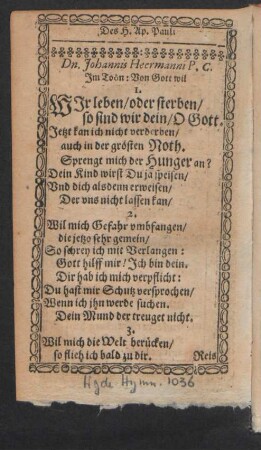 Des H. Ap. Pauli
Dn. Johannis Heermanni P. C.
Im Toon: Von Gott wil
1.
WIr leben/ oder sterben/
so sind wir dein/ O Gott.
Jetzt kan ich nicht verderben/
auch in der grösten Noth.
Sprengt mich der Hunger an?
Dein Kind wirst Du ja speisen/
Vnd dich alsdenn erweisen/
Der vns nicht lassen kan/
2.
Wil mich Gefahr vmbfangen/
die jetzo sehr gemein/
So schrey ich mit Verlangen:
Gott hilff mir/ Ich bin dein.
Dir hab ich mich verpflicht:
Du hast mir Schutz versprochen/
Wenn ich ihn werde suchen.
Dein Mund der treuget nicht.
3.
Wil mich die Welt berücken/
so flieh ich bald zu dir.
Reis
Hymn. 1036